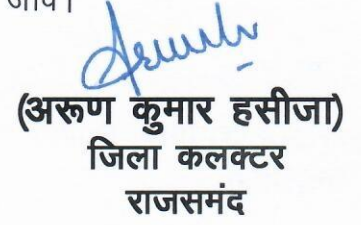 जावे।
(अरूण कुमार हसीजा)
जिला कलक्टर
राजसमंद